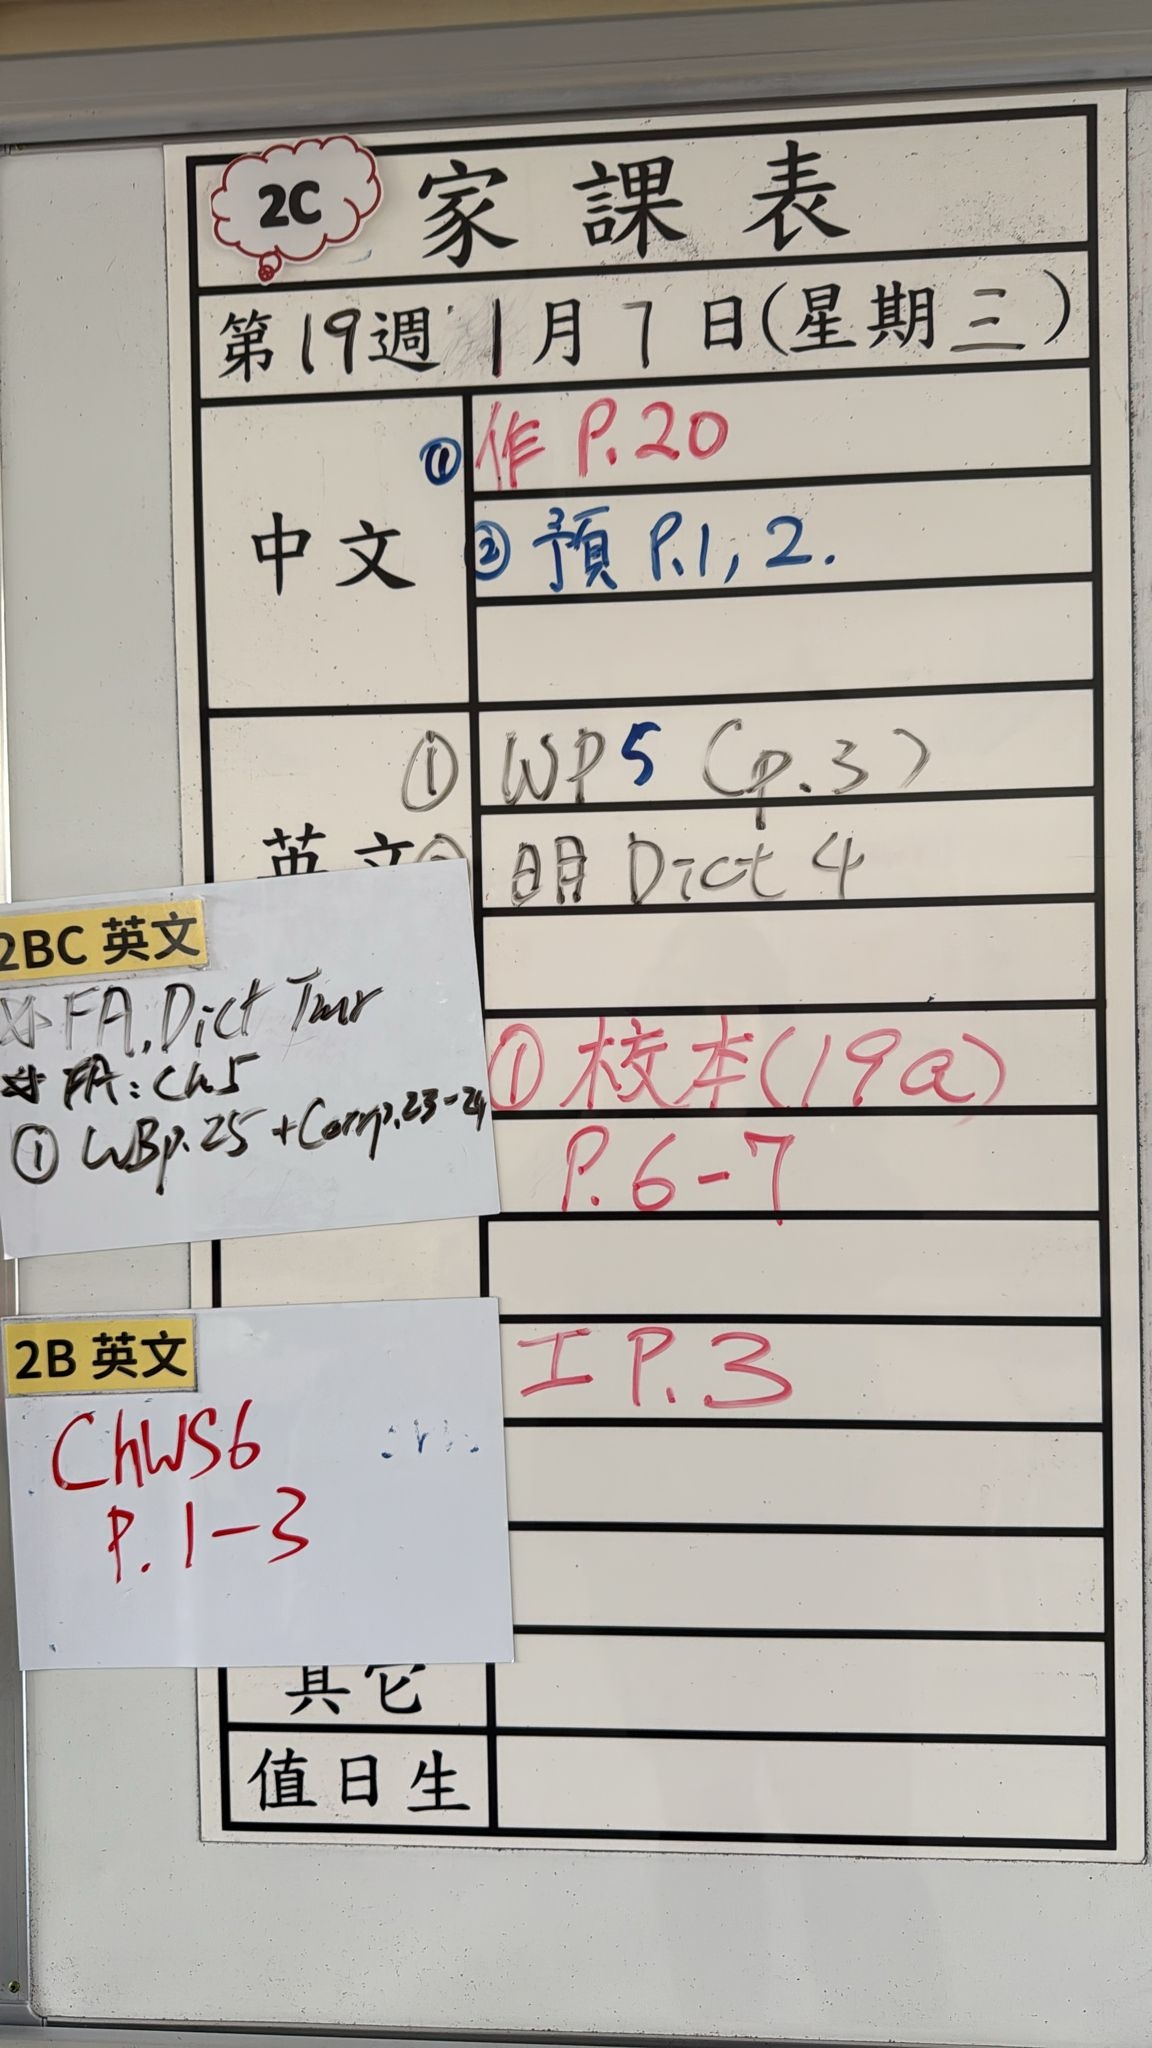 2C 家課表
第19週 1月7日(星期三)
中文
① 作 P.20
② 預 P.1, 2.
英文
① WP5 (p.3)
明 Dict 4
2BC 英文
FA, Dict Tmr
FA: Ch5
① WBp.25 + Comp.23-24
① 校本(19a)
P.6-7
2B 英文
ChWS6
P. 1-3
工 P.3
其它
值日生